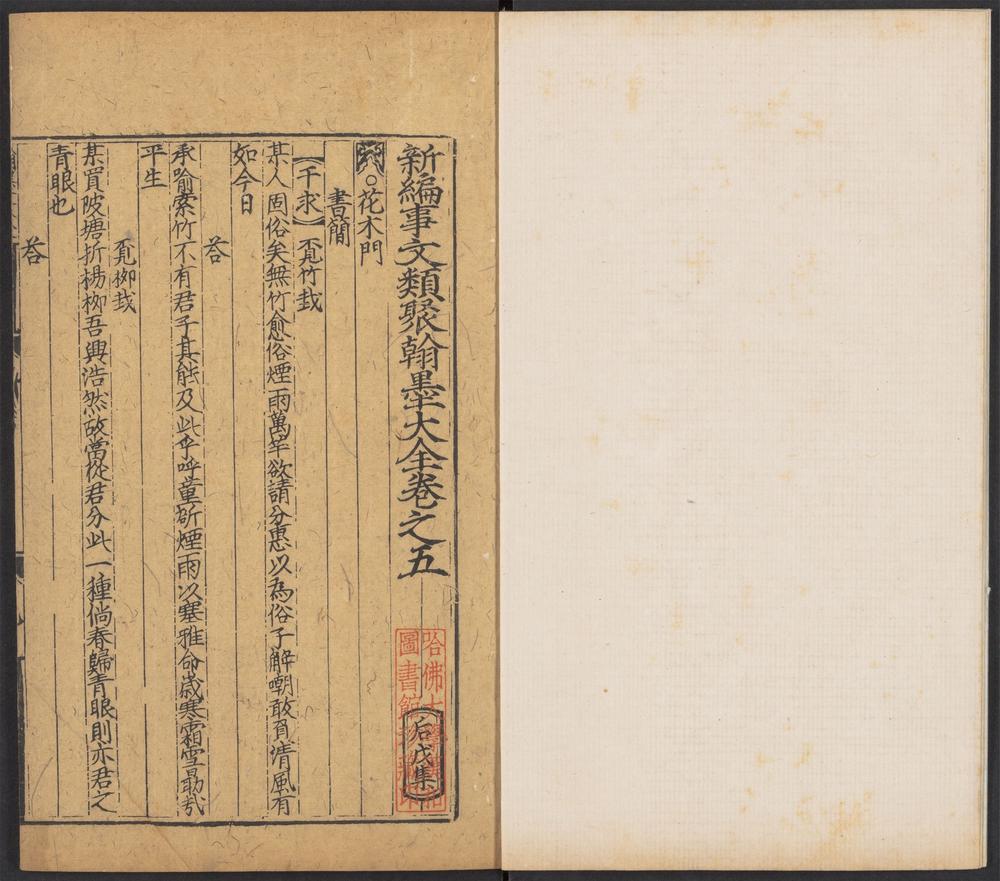 新編事文類聚翰墨大全卷之五
后戊集
○花木門
書簡
干求 覔竹栽
某人固俗矣無竹愈俗煙雨萬竿欲請分惠以為俗子解嘲敢負清風有
如今日
荅
承喻索竹不有君子其能及此乎呼童斫煙雨以塞雅命歲寒霜雪勗哉
平生
覔桞栽
某買陂塘折楊桞吾興浩然故當從君分此一種倘春歸青眼則亦君之
青眼也
荅
哈佛大學漢和
圖書館珍藏印